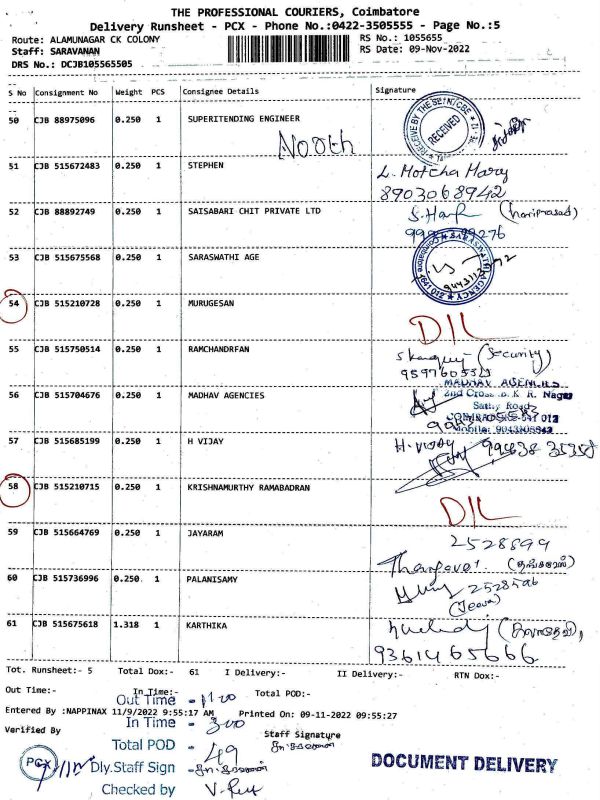 THE PROFESSIONAL COURIERS, Coimbatore
Delivery Runsheet - PCX - Phone No.:0422-3505555 - Page No.:5
Route: ALAMUNAGAR CK COLONY
RS No.: 1055655
Staff: SARAVANAN
RS Date: 09-Nov-2022
DRS No.: DCJB105565505
S No Consignment No Weight PCS Consignee Details Signature
50 CJB 88975096 0.250 1 SUPERITENDING ENGINEER
RECEIVED
Nooth
51 CJB 515672483 0.250 1 STEPHEN
L. Motcha Mary
8903068942
52 CJB 88892749 0.250 1 SAISABARI CHIT PRIVATE LTD
(hariprasad)
53 CJB 515675568 0.250 1 SARASWATHI AGE
54 CJB 515210728 0.250 1 MURUGESAN
D/L
55 CJB 515750514 0.250 1 RAMCHANDRFAN
(Security)
56 CJB 515704676 0.250 1 MADHAV AGENCIES
MADHAV AGENCIES
2nd Cross K R. Nagar
Sathy Road
57 CJB 515685199 0.250 1 H VIJAY
H. Vijay
58 CJB 515210715 0.250 1 KRISHNAMURTHY RAMABADRAN
D/L
59 CJB 515664769 0.250 1 JAYARAM
2528899
60 CJB 515736996 0.250 1 PALANISAMY
(Jeeva)
61 CJB 515675618 1.318 1 KARTHIKA
9361465666
Tot. Runsheet:- 5 Total Dox:- 61 I Delivery:- II Delivery:- RTN Dox:-
Out Time:- In Time:- Total POD:-
Out Time -
Entered By :NAPPINAX 11/9/2022 9:55:17 AM Printed On: 09-11-2022 09:55:27
In Time - 300
Verified By
Staff Signature
Total POD - 49
PCX
Dly.Staff Sign -
DOCUMENT DELIVERY
Checked by